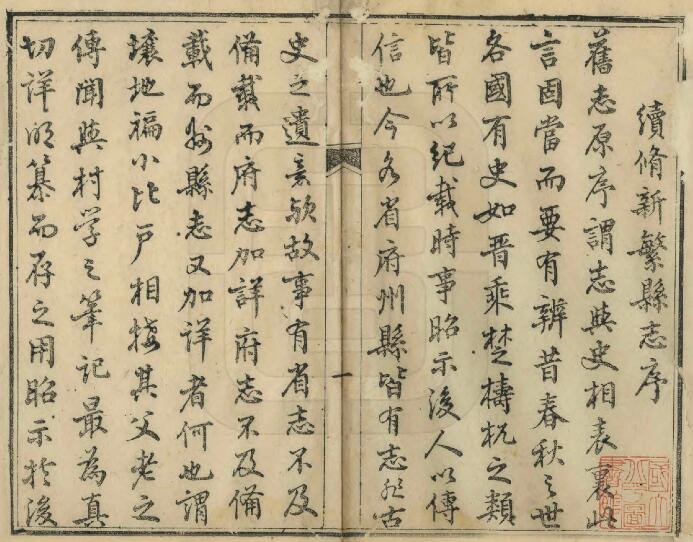 續脩新繁縣志序
舊志原序謂志與史相表裏此
言固當而要有辨昔春秋之世
各國有史如晋乘楚檮杌之類
皆所以紀載時事昭示後人以傳
信也今各省府州縣皆有志殆古
史之遺意歟故事有省志不及
備載而府志加詳府志不及備
載而州縣志又加詳者何也謂
壤地褊小比戶相接其父老之
傳聞與村學之筆記最為真
切詳明纂而存之用昭示於後
一